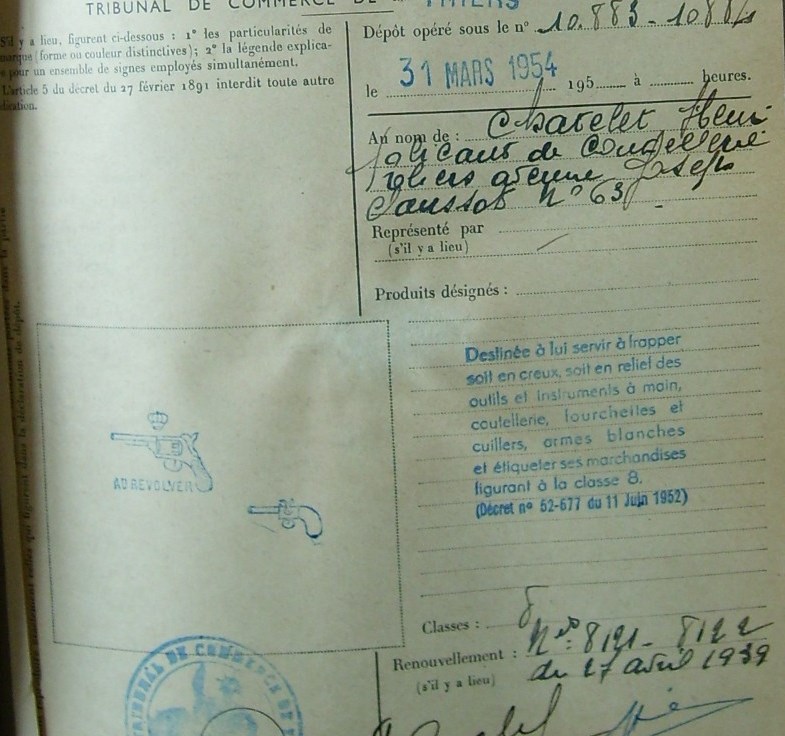 TRIBUNAL DE COMMERCE DE THIERS
S'il y a lieu, figurent ci-dessous : 1° les particularités de
marque (forme ou couleur distinctives); 2° la légende explica-
pour un ensemble de signes employés simultanément.
L'article 5 du décret du 27 février 1891 interdit toute autre
Dépôt opéré sous le n° 10.883 - 10884
le 31 MARS 1954 195 à heures.
Au nom de : Chatelet Henri
fabricant de Coutellerie
avenue Joseph
Claussat N° 63
Représenté par
(s'il y a lieu)
Produits désignés :
Destinée à lui servir à frapper
soit en creux, soit en relief des
outils et instruments à main,
coutellerie, fourchettes et
cuillers, armes blanches
et étiqueter ses marchandises
figurant à la classe 8.
(Décret n° 52-677 du 11 Juin 1952)
AU REVOLVER
Classes : 8
Renouvellement : Nos: 8121 - 8122
(s'il y a lieu) du 27 avril 1939
TRIBUNAL DE COMMERCE DE